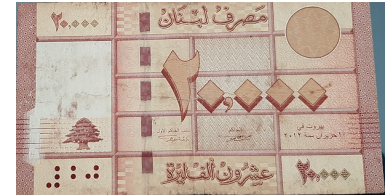 ٢٠.٠٠٠
مصرف لبنان
٢٠,٠٠٠
بيروت في
١ حزيران سنة ٢٠١٢
عشرون ألف ليرة
٢٠.٠٠٠